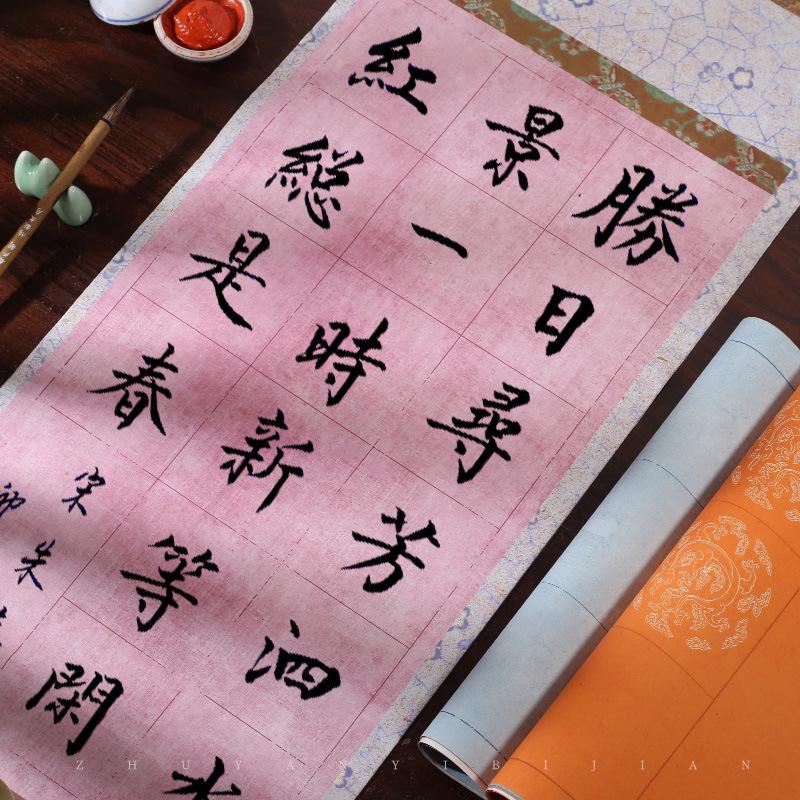 勝日尋芳泗水
景一時新等閑
紅総是春
宋朱
ZHUYANYIBIJIAN